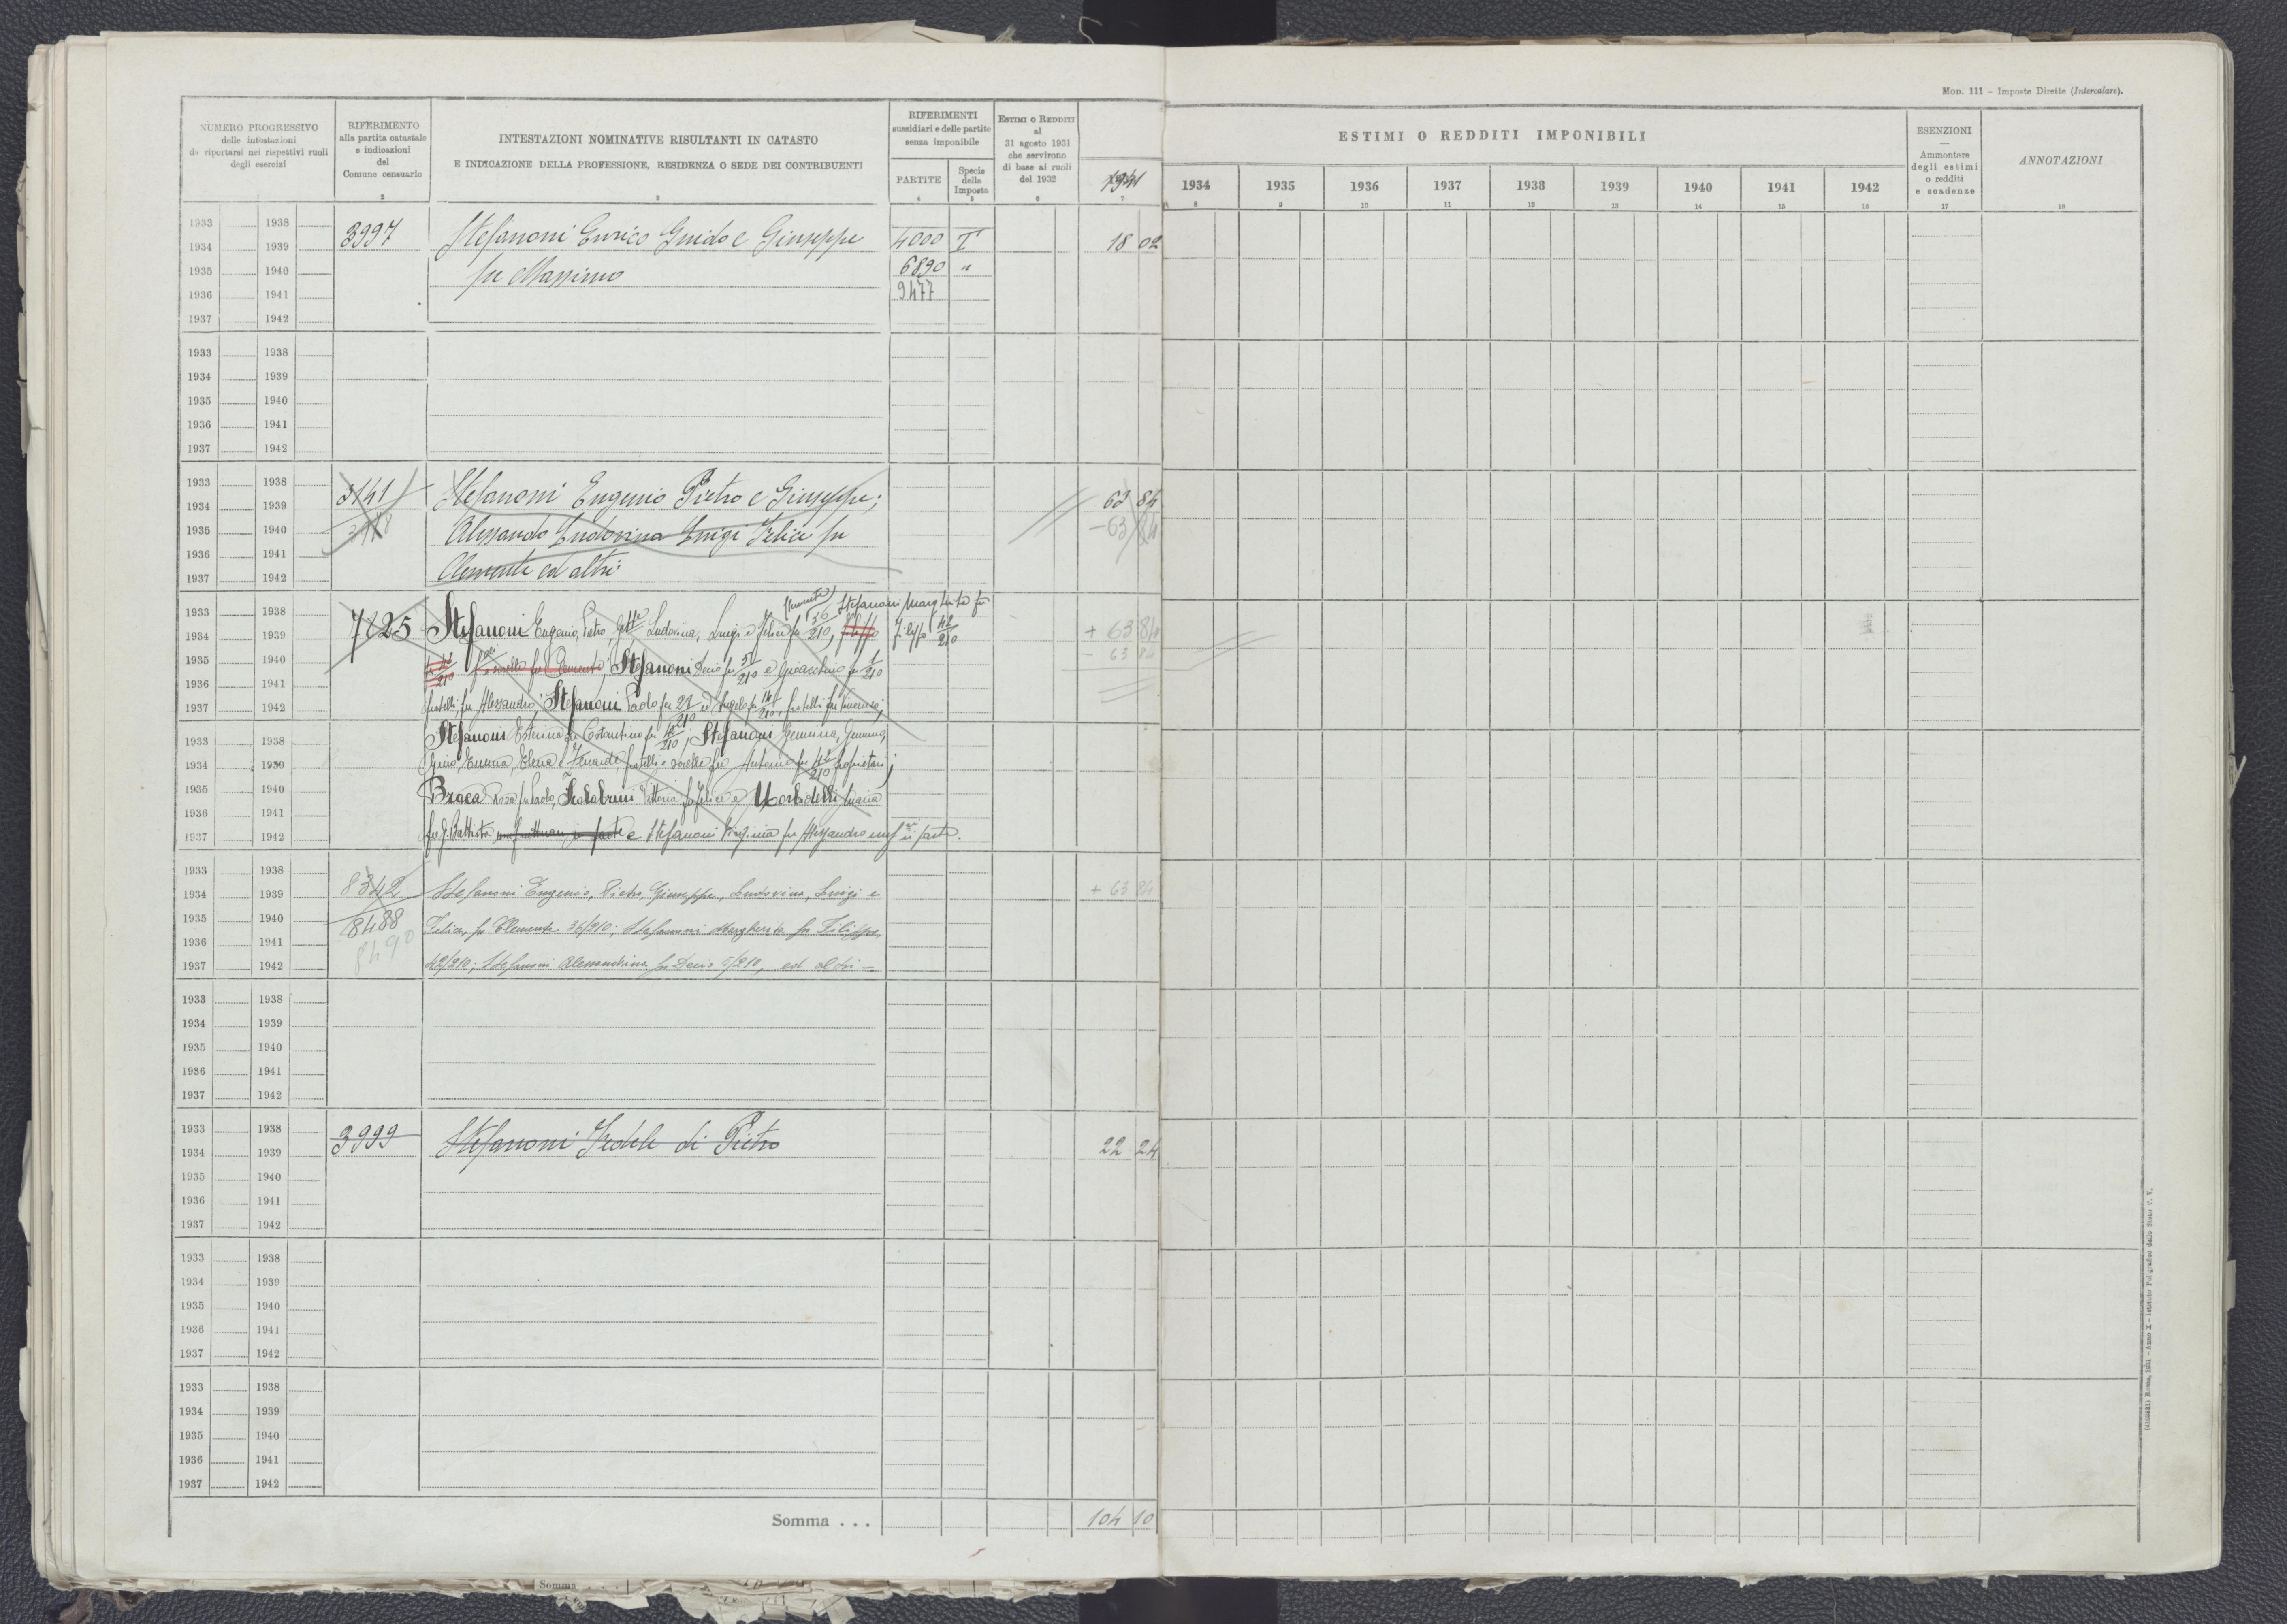 MOD. 111 – Imposte Dirette (Intercalare).
NUMERO PROGRESSIVO
delle intestazioni
da riportarsi nei rispettivi ruoli
degli esercizi
1
RIFERIMENTO
alla partita catastale
e indicazioni
del
Comune censuario
2
INTESTAZIONI NOMINATIVE RISULTANTI IN CATASTO
E INDICAZIONE DELLA PROFESSIONE, RESIDENZA O SEDE DEI CONTRIBUENTI
3
RIFERIMENTI
sussidiari e delle partite
senza imponibile
PARTITE
4
Specie
della
Imposta
5
ESTIMI O REDDITI
al
31 agosto 1931
che servirono
di base ai ruoli
del 1932
6
1941
7
ESTIMI O REDDITI IMPONIBILI
1934 1935 1936 1937 1938 1939 1940 1941 1942
8 9 10 11 12 13 14 15 16
ESENZIONI
—
Ammontare
degli estimi
o redditi
e scadenze
17
ANNOTAZIONI
18
1933 1938
1934 1939 3997 Stefanoni Enrico Guido e Giuseppe 4000 T 18 02
1935 1940 fu Massimo 6890 "
1936 1941 9477
1937 1942
1933 1938
1934 1939
1935 1940
1936 1941
1937 1942
1933 1938 3141 Stefanoni Eugenio Pietro e Giuseppe;
1934 1939 63 84
1935 1940 Alessandro Ludovina Luigi Felice fu −63 84
1936 1941
1937 1942 Clemente ed altri
1933 1938 Clemente Stefanoni Margherita fu
1934 1939 7825 Stefanoni Eugenio, Pietro Ludovina, Luigi e Felice fu 36/210, Filippo 42/210 + 63 84
1935 1940 fu Clemente; Stefanoni Decio fu 5/210 e Gioacchino fu /210 − 63 84
1936 1941
1937 1942 fratelli fu Alessandro; Stefanoni Paolo fu 21/210 ed Angelo fu 14/210, fratelli fu Vincenzo;
1933 1938 Stefanoni Esterina fu Costantino fu /210; Stefanoni Gemma,
1934 1939 Gino, Emma, Elena fratelli e sorelle fu Antonio fu 42/210 proprietari;
1935 1940 Braca Rosa fu Paolo, Vittoria fu Felice e Morbidelli Maria
1936 1941
1937 1942 fu G. Battista usufruttuari in parte e Stefanoni Virginia fu Alessandro usuf in parte.
1933 1938 8342
1934 1939 Stefanoni Eugenio, Pietro, Giuseppe, Ludovina, Luigi e + 63 84
1935 1940 8488 Felice, fu Clemente 36/210; Stefanoni Margherita fu Filippo
1936 1941 8490
1937 1942 42/210; Stefanoni Alessandrina fu Decio 5/210, ed altri –
1933 1938
1934 1939
1935 1940
1936 1941
1937 1942
1933 1938 3999 Stefanoni Fedele di Pietro
1934 1939 22 24
1935 1940
1936 1941
1937 1942
1933 1938
1934 1939
1935 1940
1936 1941
1937 1942
1933 1938
1934 1939
1935 1940
1936 1941
1937 1942
Somma . . . 104 10
Somma . . .
(4103821) Roma, 1931 – Anno X – Istituto Poligrafico dello Stato P. V.